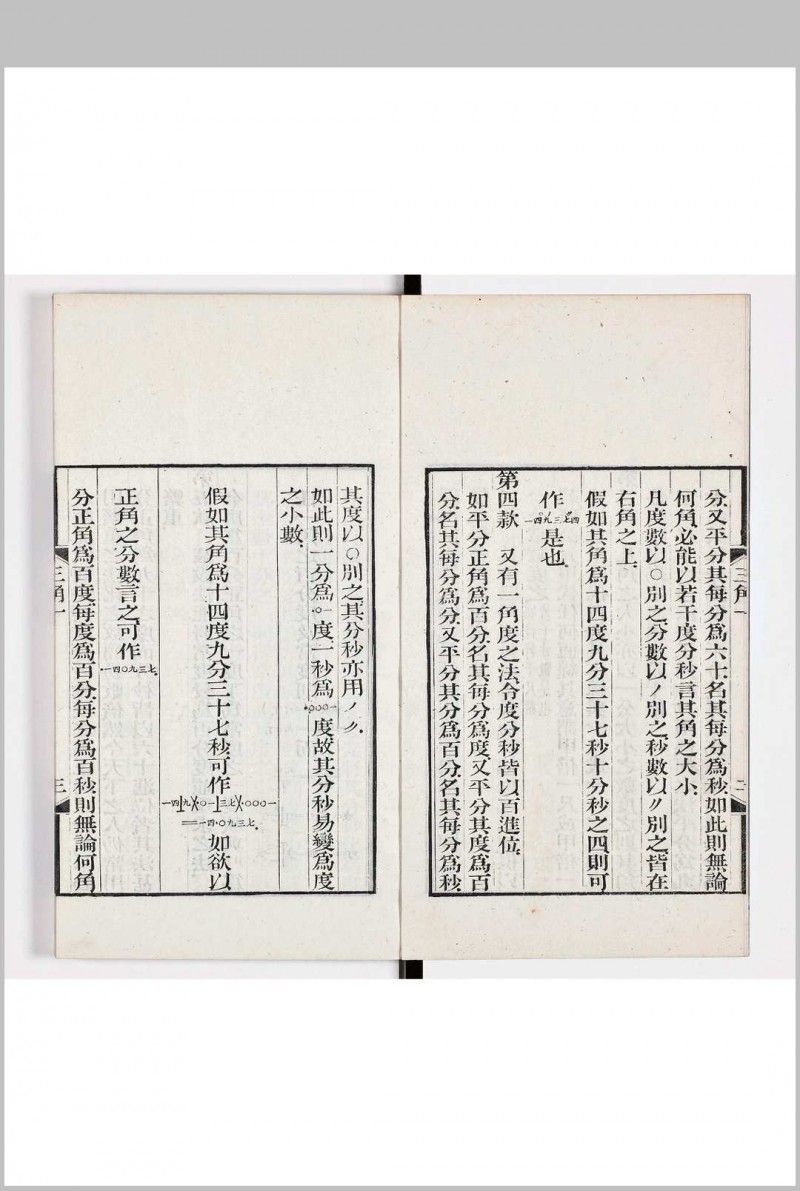 三角一
二
分又平分其每分爲六十名其每分爲秒如此則無論
何角必能以若干度分秒言其角之大小
凡度數以○別之分數以ノ別之秒數以〃別之皆在
右角之上
假如其角爲十四度九分三十七秒十分秒之四則可
作 是也
第四款 又有一角度之法令度分秒皆以百進位
如平分正角爲百分名其每分爲度又平分其度爲百
分名其每分爲分又平分其分爲百分名其每分爲秒
其度以○別之其分秒亦用ノ〃
如此則一分爲·○一度一秒爲·○○○一度故其分秒易變爲度
之小數
假如其角爲十四度九分三十七秒可作一四⊥九×·○一⊥三七×·○○○一
=一四·○九三七如欲以
正角之分數言之可作·一四○九三七
分正角爲百度每度爲百分每分爲百秒則無論何角
三角一
三